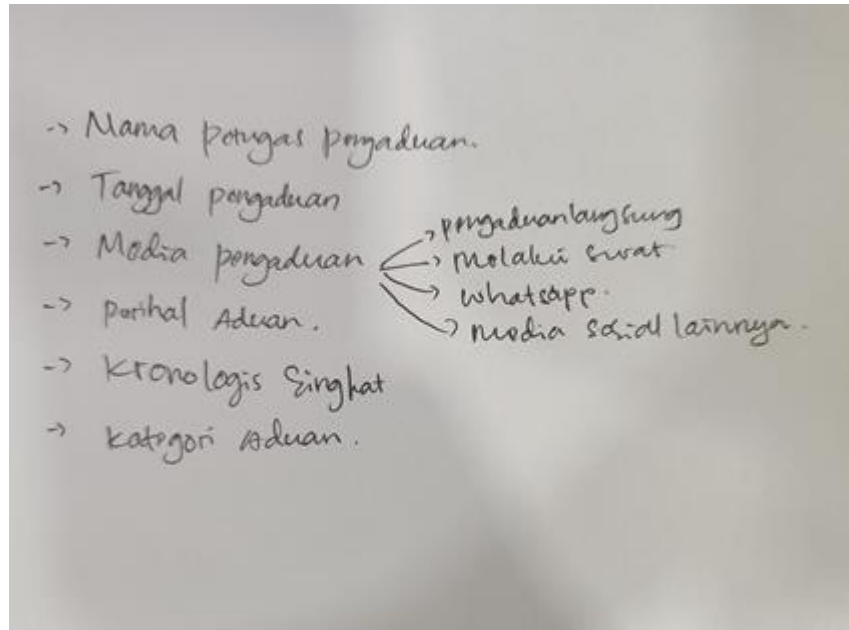 -> Nama petugas pengaduan.
-> Tanggal pengaduan
-> Media pengaduan
-> pengaduan langsung
-> melalui surat
-> whatsapp.
-> media sosial lainnya.
-> perihal Aduan.
-> Kronologis Singkat
-> kategori Aduan.